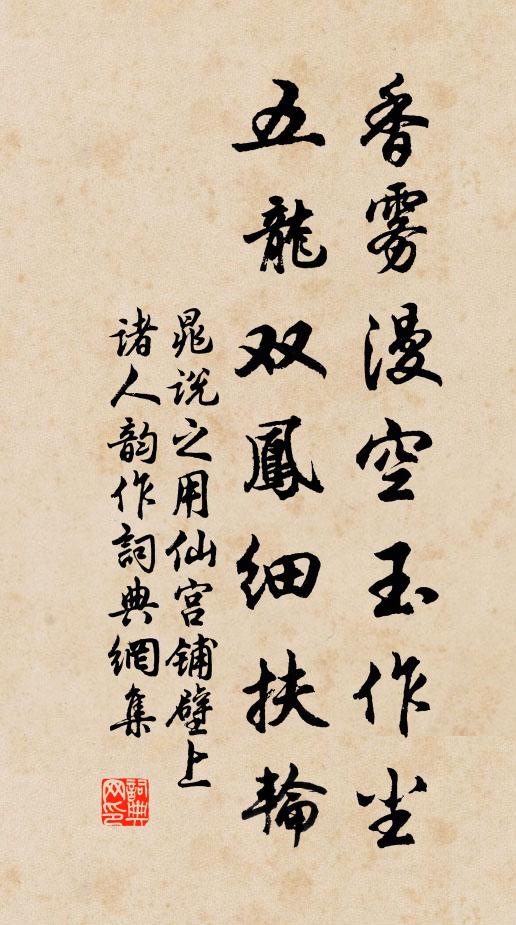 香雾漫空玉作尘
五龍双鳳细扶輪
晁说之用仙宫铺壁上
诸人韵作詞典網集
詞典網印